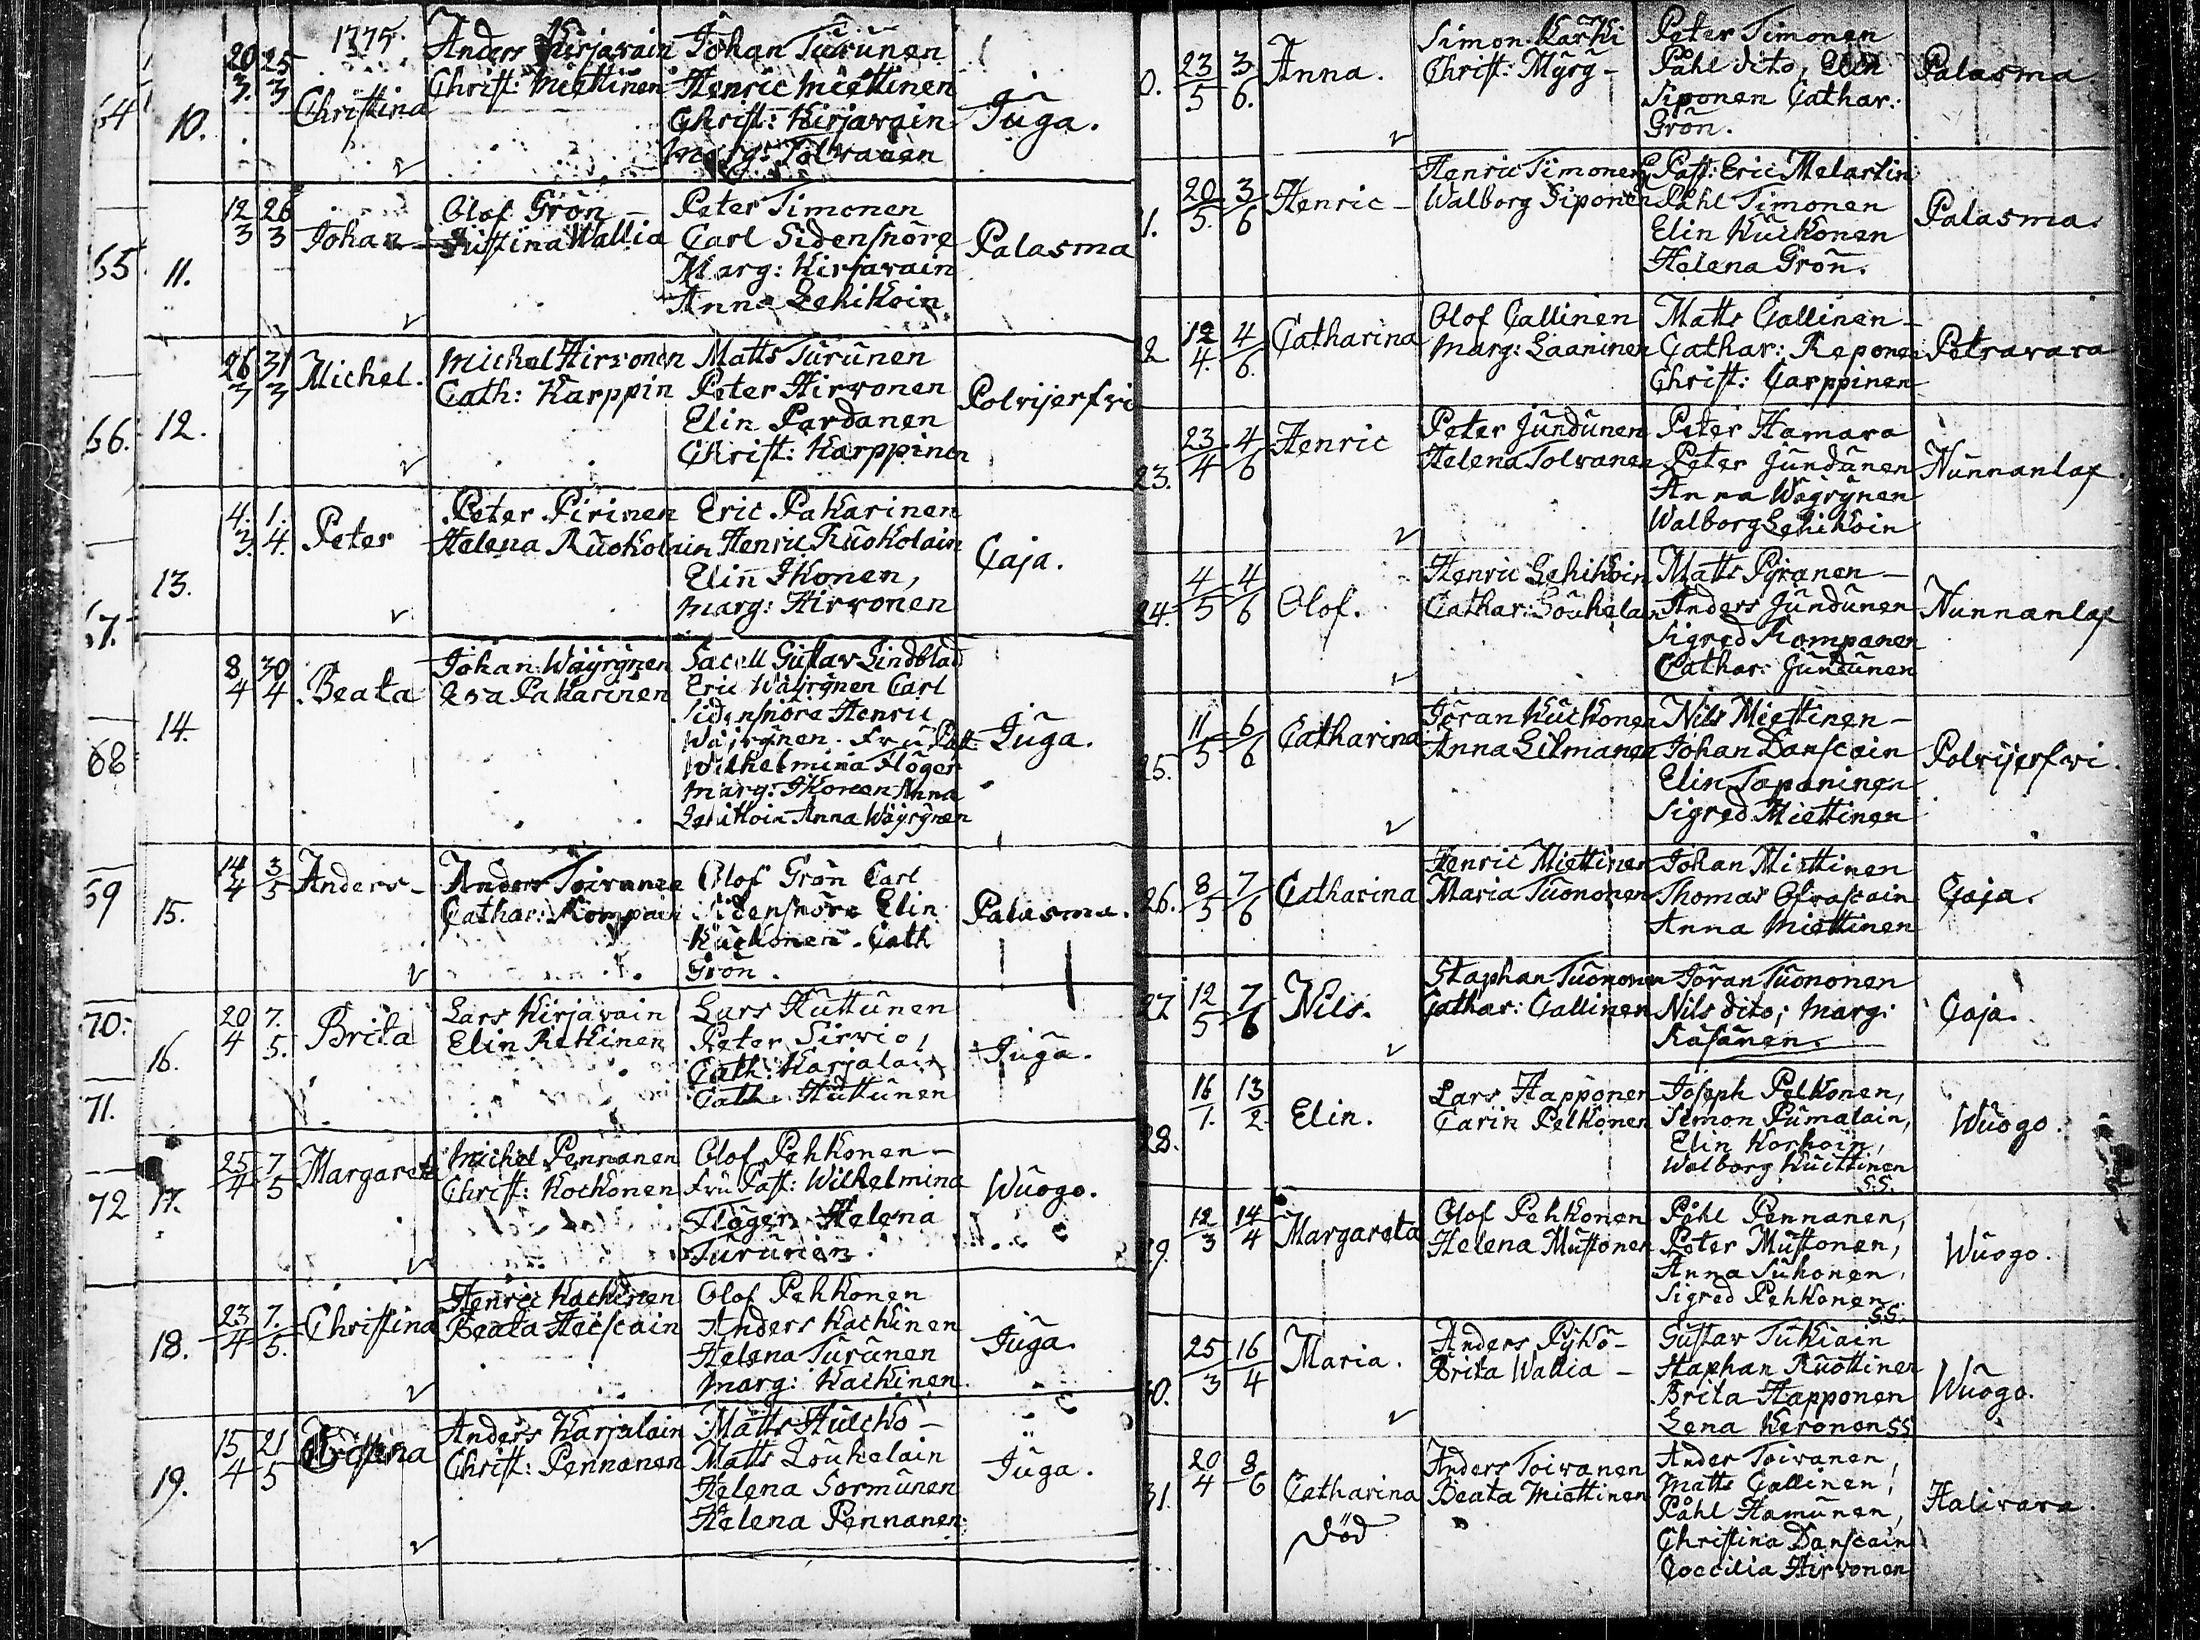 1775.
10. 20/3. 25/3 Christina
Anders Kirjavain
Christ: Miettinen
Johan Turūnen
Henric Miettinen
Christ: Kirjavain
Marg: Tolvanen
Jūga.
65. 11. 12/3 26/3 Johan
Olof Grön
Kistina Wallia
Peter Timonen
Carl Sidensnöre
Marg: Kirjavain
Anna Lehikoin
Palasma
66. 12. 26/3 31/3 Michel.
Michel Hirvonen
Cath: Karppin
Matts Tūrūnen
Peter Hirvonen
Elin Pardanen
Christ: Karppinen
Polvijerfvi
13. 4./3. 1./4. Peter
Peter Pirinen
Helena Rūokolain
Eric Pakarinen
Henric Rūokolain
Elin Ikonen,
Marg: Hirvonen
Caja.
68 14. 8/4 30/4 Beata
Johan Wäyrynen
Eva Pakarinen
Sacell Gūstav Lindblad
Eric Wäyrynen Carl
Sidensnöre Henric
Wäyrynen. Frū Past:
Wilhelmina Flöger
Marg: Ikonen Anna
Lehikoin Anna Wäyrynen
Jūga.
69 15. 14/4 3/5 Anders
Anders Toivanen
Cathar: Kompain
Olof Grön Carl
Sidensnöre Elin
Kūckonen. Cath
Grön.
Palasma.
70. 16. 20/4 7./5. Brita
Lars Kirjavain
Elin Retkinen
Lars Hūttūnen
Peter Sirvio,
Cath: Karjalain
Cath: Hūttūnen
Jūga.
71.
72 17. 25/4 7/5 Margaret
Michel Pennanen
Christ: Kockonen
Olof Pehkonen
Frū Past: Wilhelmina
Flöger Helena
Tūrūnen.
Wūogo.
18. 23/4 7./5. Christina
Henric Kackinen
Beata Heiscain
Olof Pehkonen
Anders Kackinen
Helena Tūrūnen
Marg: Kackinen.
Jūga.
19. 15/4 21/5 Christina
Anders Karjalain
Christ: Pennanen
Matts Hūlcko
Matts Loūhelain
Helena Sormūnen
Helena Pennanen.
Jūga.
0. 23/5 3/6. Anna.
Simon Karki
Christ: Myry
Peter Timonen
Påhl dito, Elin
Siponen Cathar:
Grön.
Palasma
1. 20/5. 3/6 Henric
Henric Timonen
Walborg Siponen
Past: Eric Melartin
Påhl Timonen
Elin Kūckonen
Helena Grön.
Palasma.
2 12/4. 4/6. Catharina
Olof Callinen
Marg: Laaninen
Matts Callinen
Cathar: Reponen
Christ: Carppinen
Petravara
23. 23/4 4/6 Henric
Peter Jūndūnen
Helena Tolvanen
Peter Hamara
Peter Jūndūnen
Anna Wäyrynen
Walborg Lehikoin
Nūnnanlax
24. 4/5 4/6 Olof.
Henric Lehikoin
Cathar: Loūhelain
Matts Pyranen
Anders Jūndūnen
Sigred Kompanen
Cathar: Jūndūnen
Nūnnanlax
25. 11/5 6/6 Catharina
Jöran Kūckonen
Anna Lilmanen
Nils Miettinen
Johan Danscain
Elin Tapaninen
Sigred Miettinen
Polvijerfvi.
26. 8/5 7/6 Catharina
Henric Miettinen
Maria Tūononen
Johan Miettinen
Thomas Ofvascain
Anna Miettinen
Caja.
27 12/5 7/6 Nils.
Staphan Tūononen
Cathar: Callinen
Jöran Tūononen
Nils dito; Marg:
Räsänen.
Caja.
28. 16/1. 13/2 Elin.
Lars Happonen
Carin Pelkonen
Joseph Pelkonen,
Simon Pūmalain,
Elin Korhoin,
Walborg Kūittinen
SS.
Wūogo.
9. 12/3 14/4 Margareta
Olof Pehkonen
Helena Mūstonen
Påhl Pennanen,
Peter Mūstonen,
Anna Sūhonen,
Sigred Pehkonen
SS.
Wūogo.
0. 25/3 16/4 Maria.
Anders Pykö
Brita Wallia
Gūstav Tūkiain
Staphan Rūottinen
Brita Happonen
Lena Keronen SS
Wūogo.
31. 20/4 8/6 Catharina
Död
Anders Toivanen
Beata Miettinen
Ander Toivanen,
Matts Callinen,
Påhl Hamūnen,
Christina Danscain
Coecilia Hirvonen
Halivara.